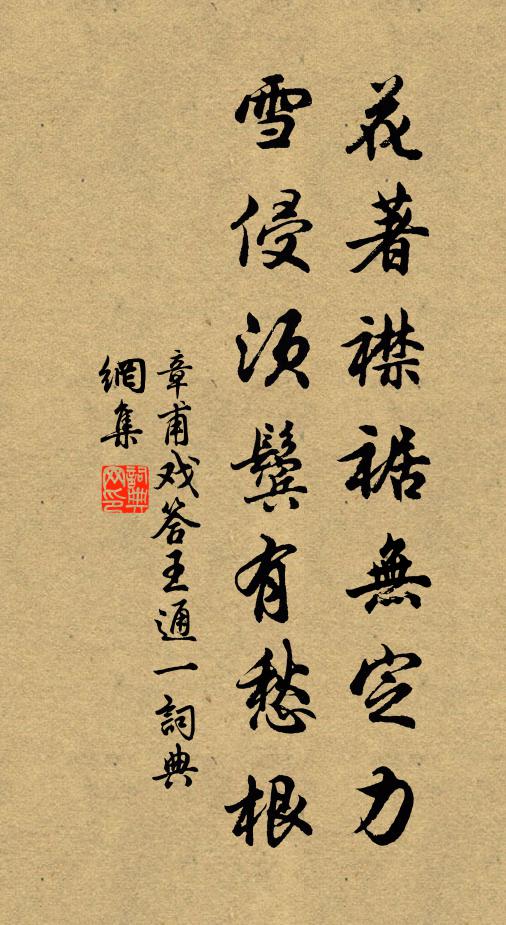 花著襟裾無定力
雪侵須鬓有愁根
章甫戏答王通一詞典
網集
詞典
网印